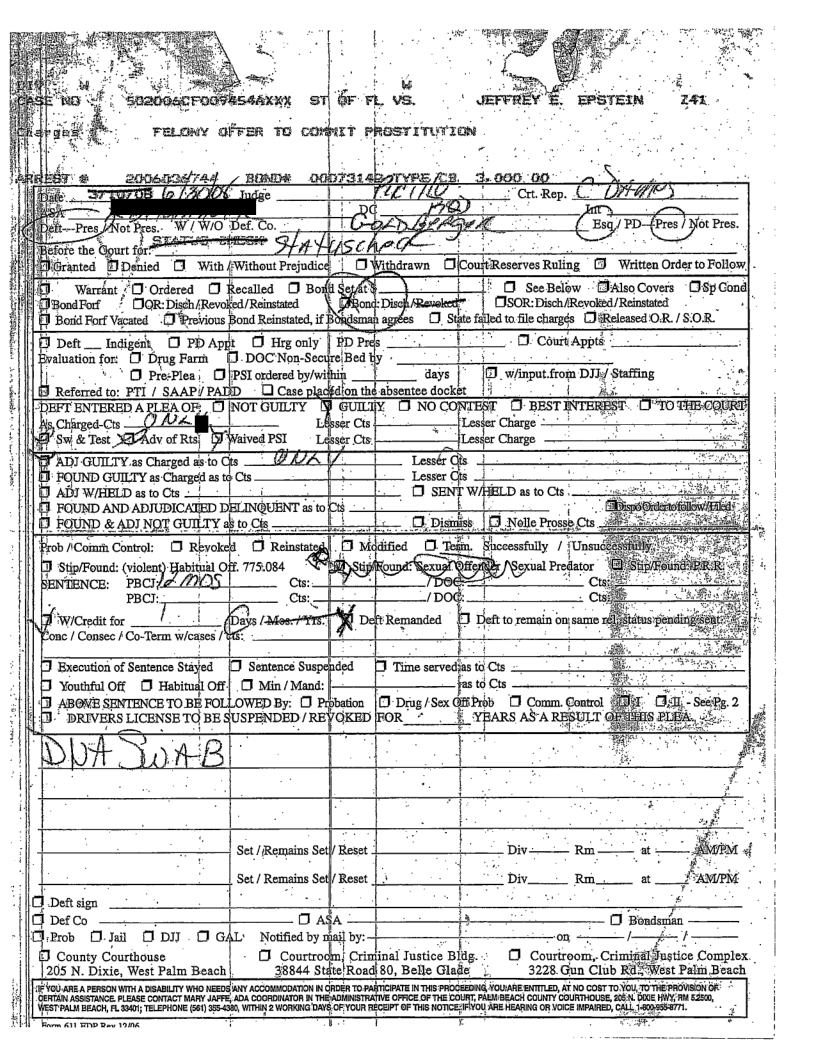 DIV W W
CASE NO 502006CF009454AXXX ST OF FL VS. JEFFREY E. EPSTEIN Z41
Charges FELONY OFFER TO COMMIT PROSTITUTION
ARREST # 2006036744 BOND# 00073142 TYPE/CB. 3,000.00
Date 3/10/08 6/30/08 Judge Crt. Rep.
ASA DC Int
Deft--Pres / Not Pres. W / W/O Def. Co. Goldberger Esq / PD--Pres / Not Pres.
Before the Court for: STATUS CHECK Status check
Granted Denied With / Without Prejudice Withdrawn Court Reserves Ruling Written Order to Follow
Warrant Ordered Recalled Bond Set at $ See Below Also Covers Sp Cond
Bond Forf OR: Disch / Revoked / Reinstated Bond: Disch / Revoked SOR: Disch / Revoked / Reinstated
Bond Forf Vacated Previous Bond Reinstated, if Bondsman agrees State failed to file charges Released O.R. / S.O.R.
Deft Indigent PD Appt Hrg only PD Pres Court Appts
Evaluation for: Drug Farm DOC Non-Secure Bed by
Pre-Plea PSI ordered by/within days w/input from DJJ / Staffing
Referred to: PTI / SAAP / PADD Case placed on the absentee docket
DEFT ENTERED A PLEA OF: NOT GUILTY GUILTY NO CONTEST BEST INTEREST TO THE COURT
As Charged-Cts ONLY Lesser Cts Lesser Charge
Sw & Test Adv of Rts Waived PSI Lesser Cts Lesser Charge
ADJ GUILTY as Charged as to Cts ONLY Lesser Cts
FOUND GUILTY as Charged as to Cts Lesser Cts
ADJ W/HELD as to Cts SENT W/HELD as to Cts
FOUND AND ADJUDICATED DELINQUENT as to Cts Dispo Order to follow / Filed
FOUND & ADJ NOT GUILTY as to Cts Dismiss Nolle Prosse Cts
Prob / Comm Control: Revoked Reinstated Modified Term. Successfully / Unsuccessfully
Stip/Found: (violent) Habitual Off. 775.084 Stip/Found: Sexual Offender / Sexual Predator Stip/Found: P.R.R.
SENTENCE: PBCJ: 12 mos Cts: / DOC: Cts:
PBCJ: Cts: / DOC: Cts:
W/Credit for 1 Days / Mos. / Yrs. Deft Remanded Deft to remain on same rel. status pending sent
Conc / Consec / Co-Term w/cases / cts:
Execution of Sentence Stayed Sentence Suspended Time served as to Cts
Youthful Off Habitual Off Min / Mand: as to Cts
ABOVE SENTENCE TO BE FOLLOWED By: Probation Drug / Sex Off Prob Comm. Control I II - See Pg. 2
DRIVERS LICENSE TO BE SUSPENDED / REVOKED FOR YEARS AS A RESULT OF THIS PLEA.
DNA SWAB
Set / Remains Set / Reset Div Rm at AM/PM
Set / Remains Set / Reset Div Rm at AM/PM
Deft sign
Def Co ASA Bondsman
Prob Jail DJJ GAL Notified by mail by: on / /
County Courthouse Courtroom, Criminal Justice Bldg. Courtroom, Criminal Justice Complex
205 N. Dixie, West Palm Beach 38844 State Road 80, Belle Glade 3228 Gun Club Rd., West Palm Beach
IF YOU ARE A PERSON WITH A DISABILITY WHO NEEDS ANY ACCOMMODATION IN ORDER TO PARTICIPATE IN THIS PROCEEDING, YOU ARE ENTITLED, AT NO COST TO YOU, TO THE PROVISION OF
CERTAIN ASSISTANCE. PLEASE CONTACT MARY JAFFE, ADA COORDINATOR IN THE ADMINISTRATIVE OFFICE OF THE COURT, PALM BEACH COUNTY COURTHOUSE, 205 N. DIXIE HWY, RM 5.2500,
WEST PALM BEACH, FL 33401; TELEPHONE (561) 355-4380, WITHIN 2 WORKING DAYS OF YOUR RECEIPT OF THIS NOTICE. IF YOU ARE HEARING OR VOICE IMPAIRED, CALL 1-800-955-8771.
Form 611 HDP Rev 12/06